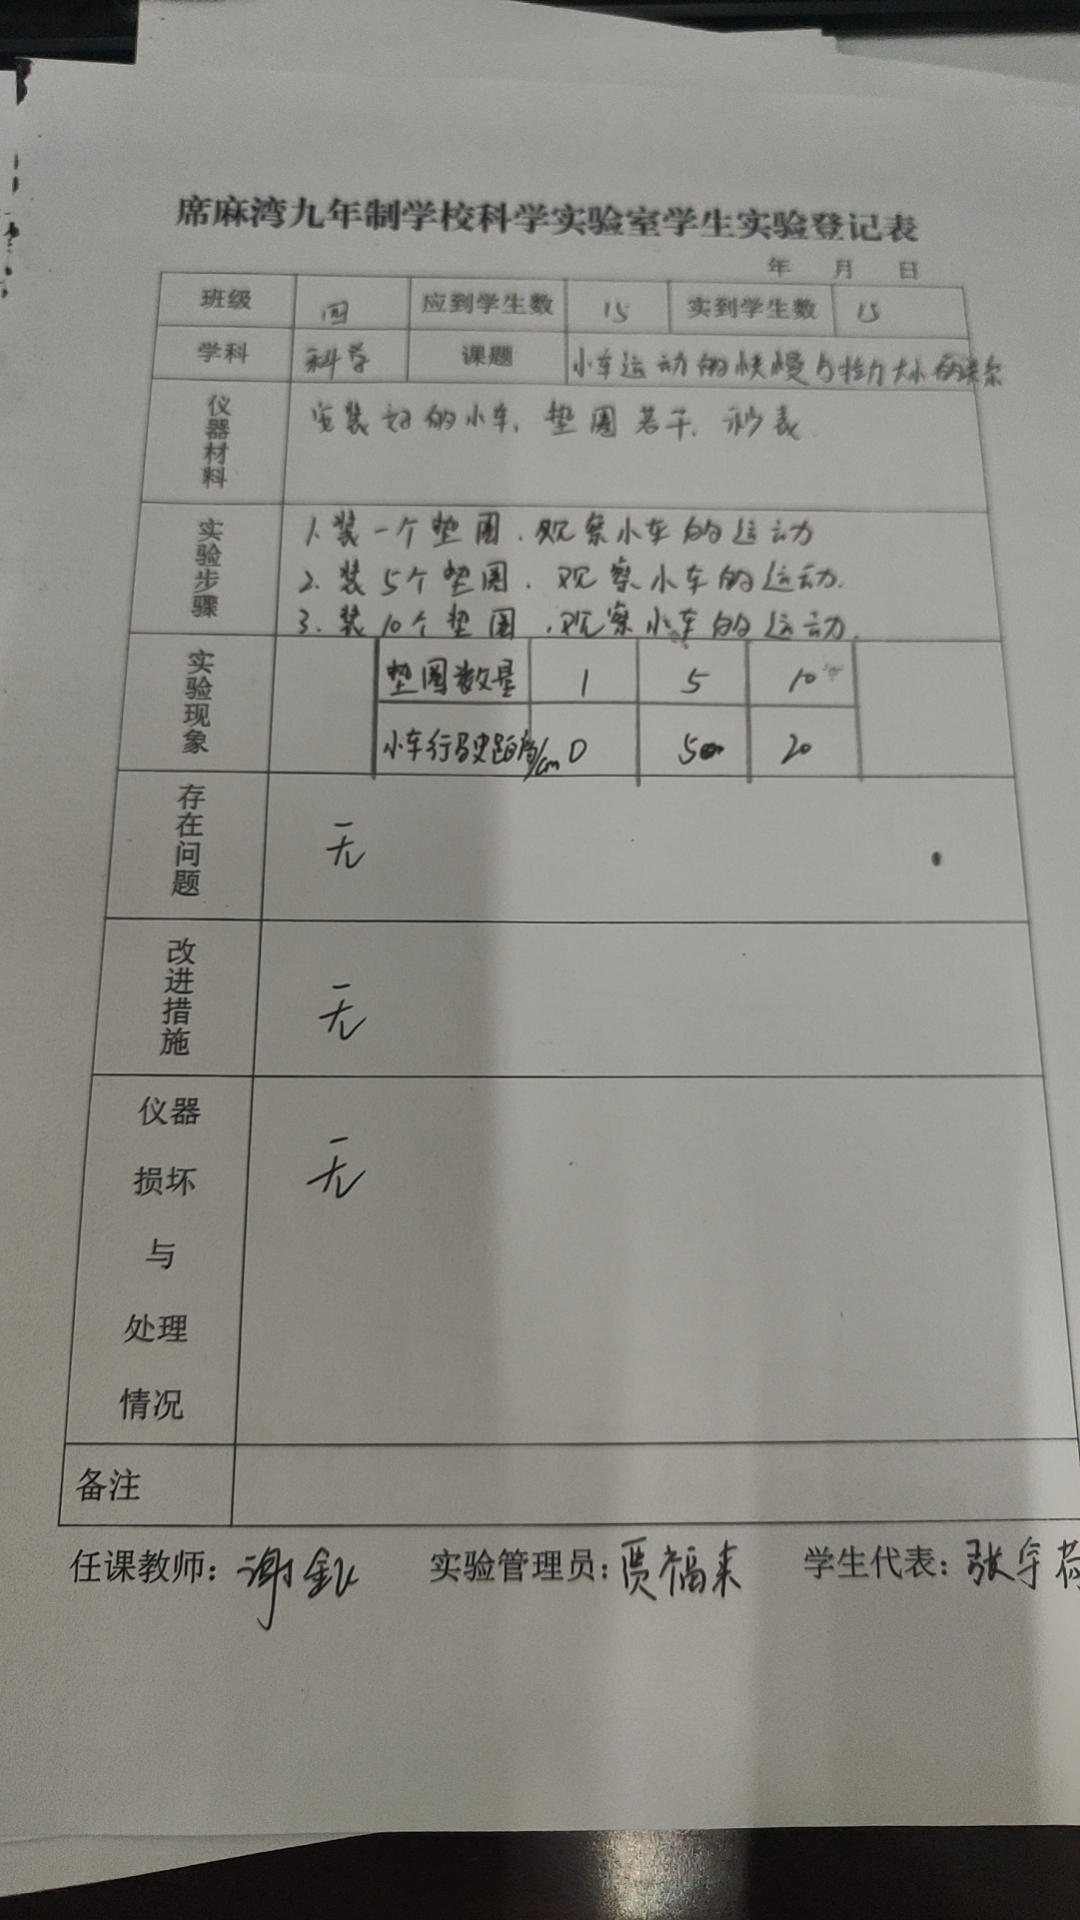 席麻湾九年制学校科学实验室学生实验登记表
年 月 日
班级 四 应到学生数 15 实到学生数 15
学科 科学 课题 小车运动的快慢与拉力大小的关系
仪器材料 安装好的小车, 垫圈若干, 秒表.
实验步骤
1. 装一个垫圈, 观察小车的运动
2. 装5个垫圈, 观察小车的运动.
3. 装10个垫圈, 观察小车的运动.
实验现象
垫圈数量 1 5 10
小车行驶距离/cm 0 5 20
存在问题 无
改进措施 无
仪器损坏与处理情况 无
备注
任课教师: 谢 实验管理员: 贾福来 学生代表: 张宇